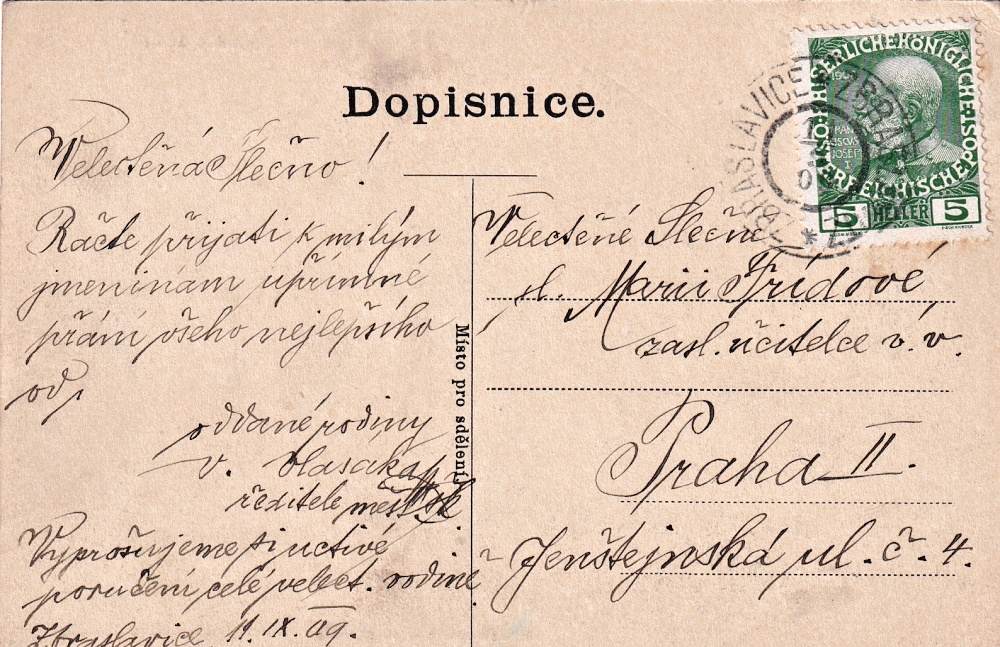 Dopisnice.
Velectěná Slečno!
Račte přijati k milým
jmeninám upřímné
přání všeho nejlepšího
od
oddané rodiny
V. Vlasáka
ředitele měšť. šk.
Vyprošujeme si uctivé
poručení celé velect. rodině
Zbraslavice 11. IX. 09.
Místo pro sdělení
Velectěné Slečně
sl. Marii Frídové,
zasl. učitelce v. v.
Praha II.
Jenštejnská ul. č. 4.
KAISERLICHE KÖNIGLICHE
ÖSTERREICHISCHE POST
1908
FRANCISCUS
JOSEPH
I
5 HELLER 5
ZBRASLAVICE